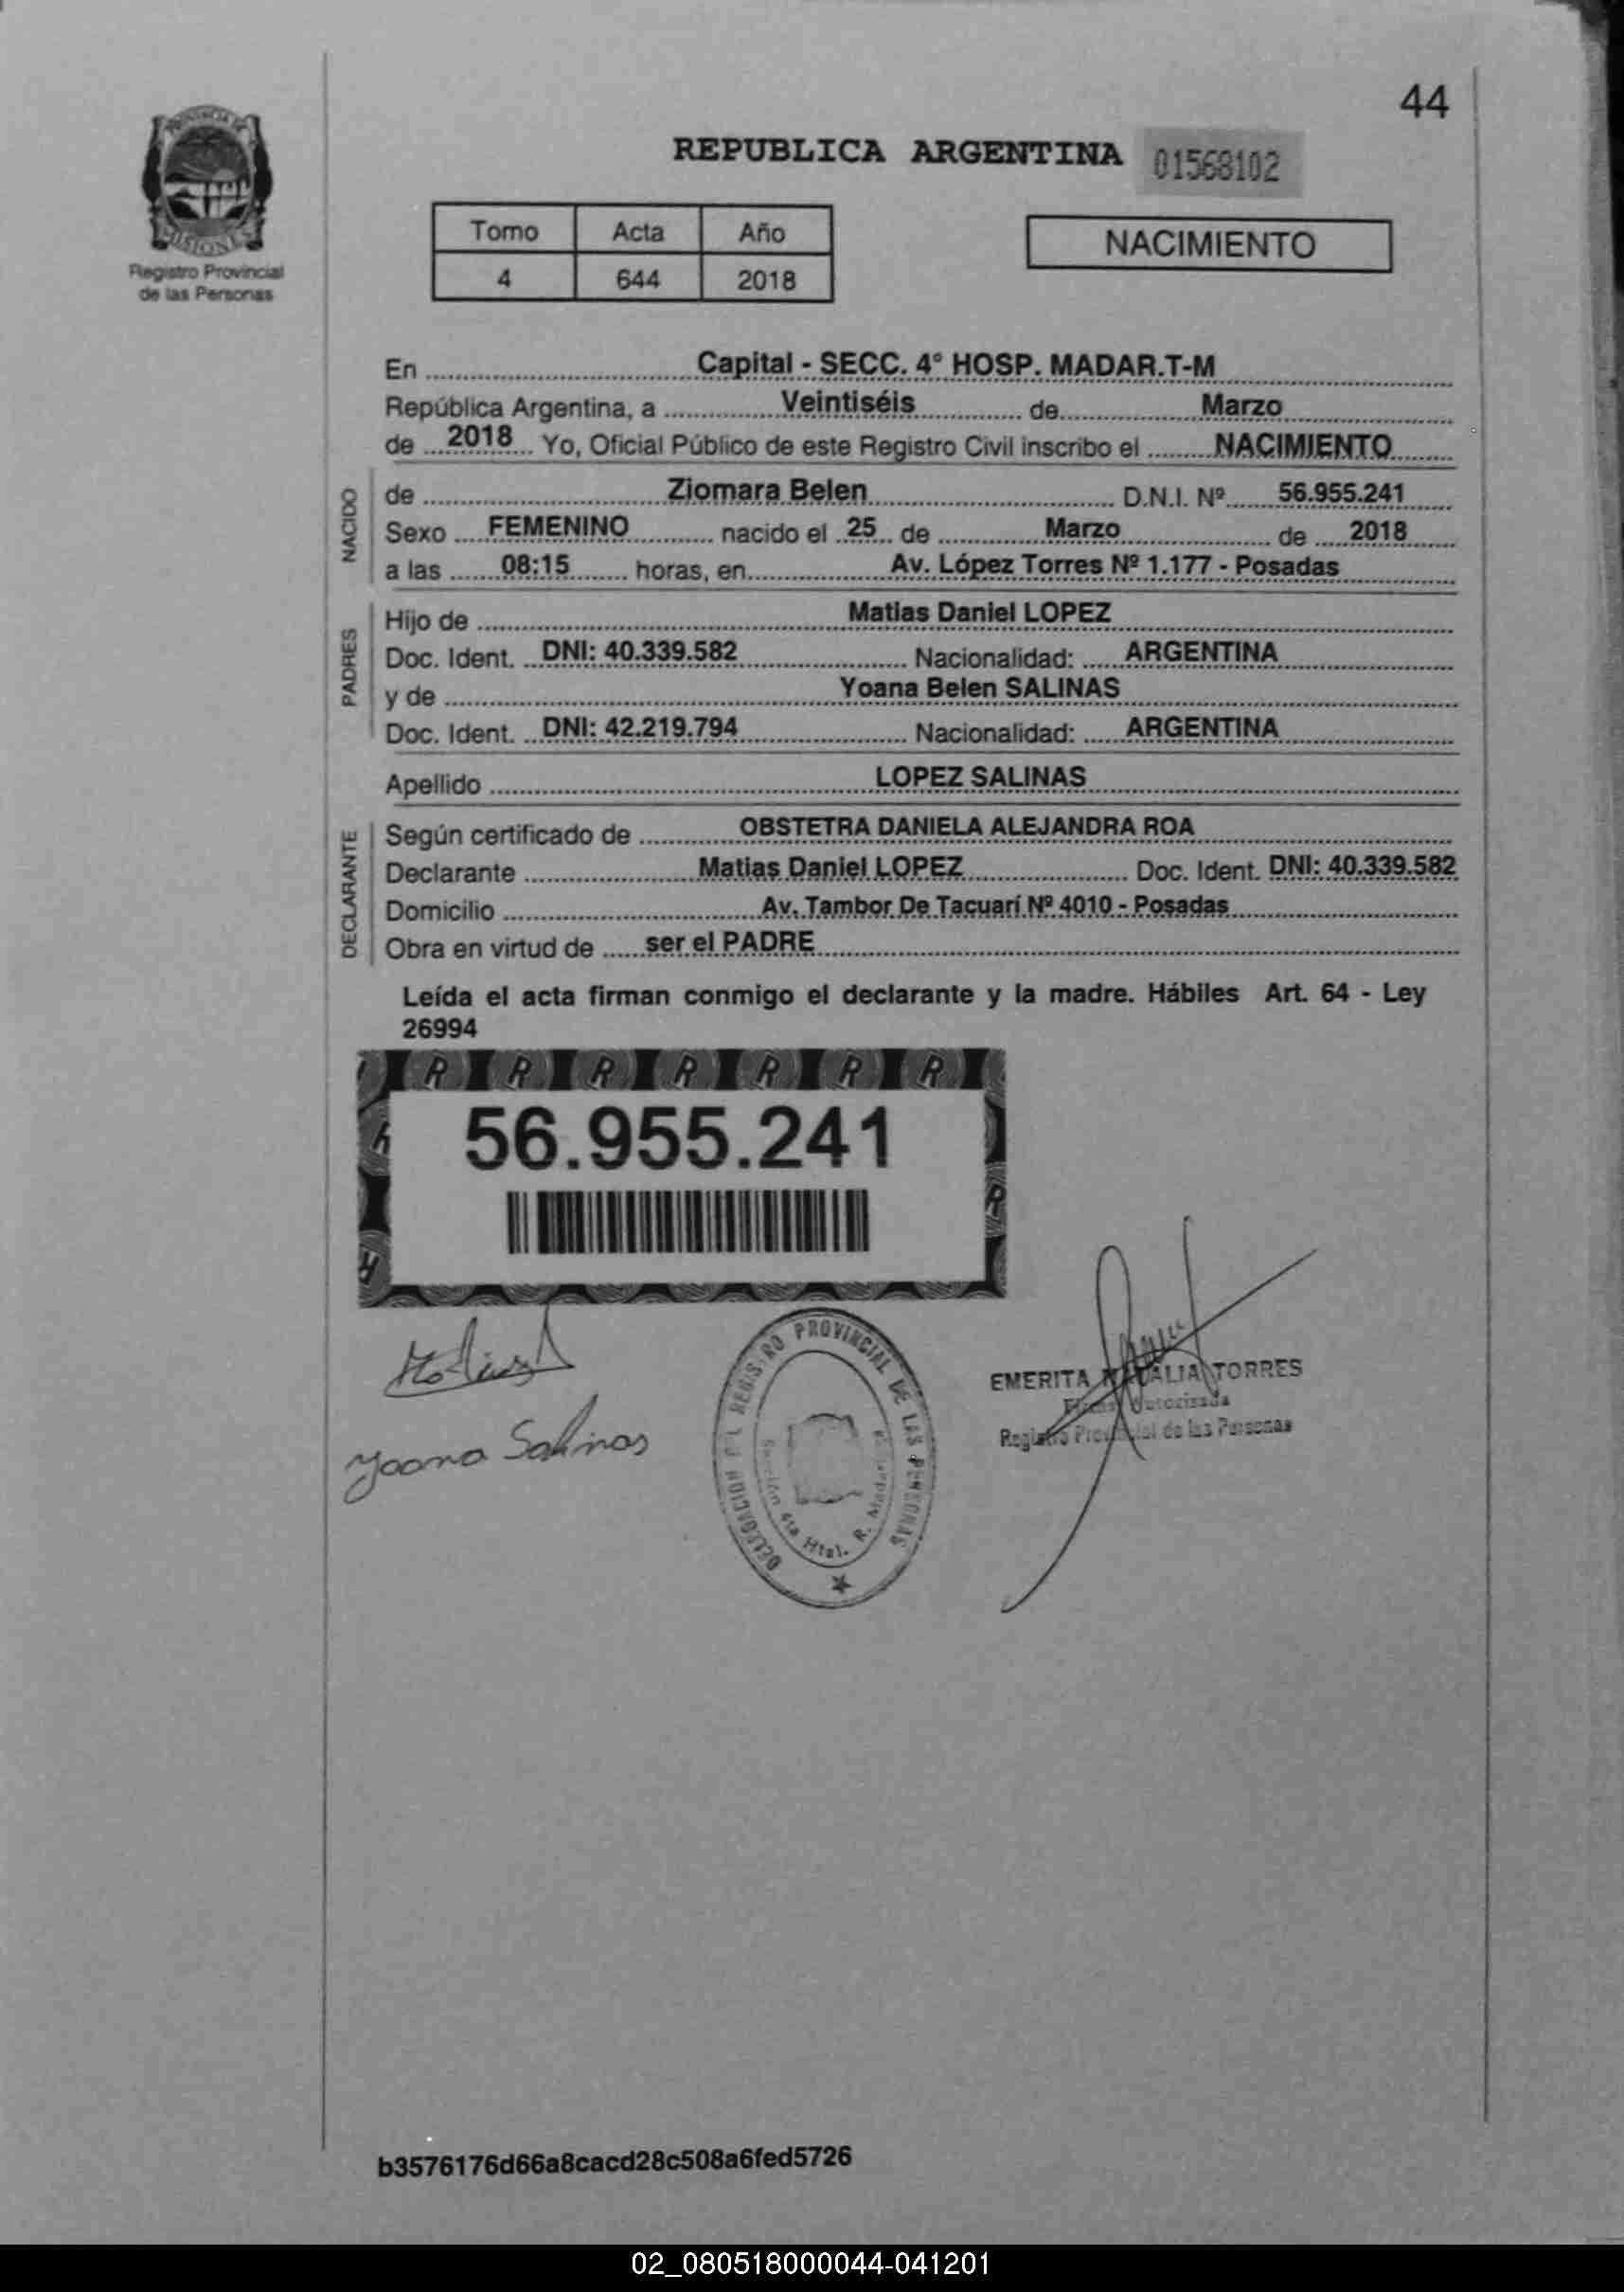 44
REPUBLICA ARGENTINA 01568102
PROVINCIA DE
MISIONES
Registro Provincial
de las Personas
Tomo Acta Año
4 644 2018
NACIMIENTO
En Capital - SECC. 4° HOSP. MADAR.T-M
República Argentina, a Veintiséis de Marzo
de 2018 Yo, Oficial Público de este Registro Civil inscribo el NACIMIENTO
NACIDO
de Ziomara Belen D.N.I. Nº 56.955.241
Sexo FEMENINO nacido el 25 de Marzo de 2018
a las 08:15 horas, en Av. López Torres Nº 1.177 - Posadas
PADRES
Hijo de Matias Daniel LOPEZ
Doc. Ident. DNI: 40.339.582 Nacionalidad: ARGENTINA
y de Yoana Belen SALINAS
Doc. Ident. DNI: 42.219.794 Nacionalidad: ARGENTINA
Apellido LOPEZ SALINAS
DECLARANTE
Según certificado de OBSTETRA DANIELA ALEJANDRA ROA
Declarante Matias Daniel LOPEZ Doc. Ident. DNI: 40.339.582
Domicilio Av. Tambor De Tacuarí Nº 4010 - Posadas
Obra en virtud de ser el PADRE
Leída el acta firman conmigo el declarante y la madre. Hábiles Art. 64 - Ley
26994
R R R R R R R
56.955.241
Yoana Salinas
DELEGACION DEL REGISTRO PROVINCIAL DE LAS PERSONAS
Sección 4ta Htal. R. Madar
EMERITA NATALIA TORRES
Firma Autorizada
Registro Provincial de las Personas
b3576176d66a8cacd28c508a6fed5726
02_080518000044-041201